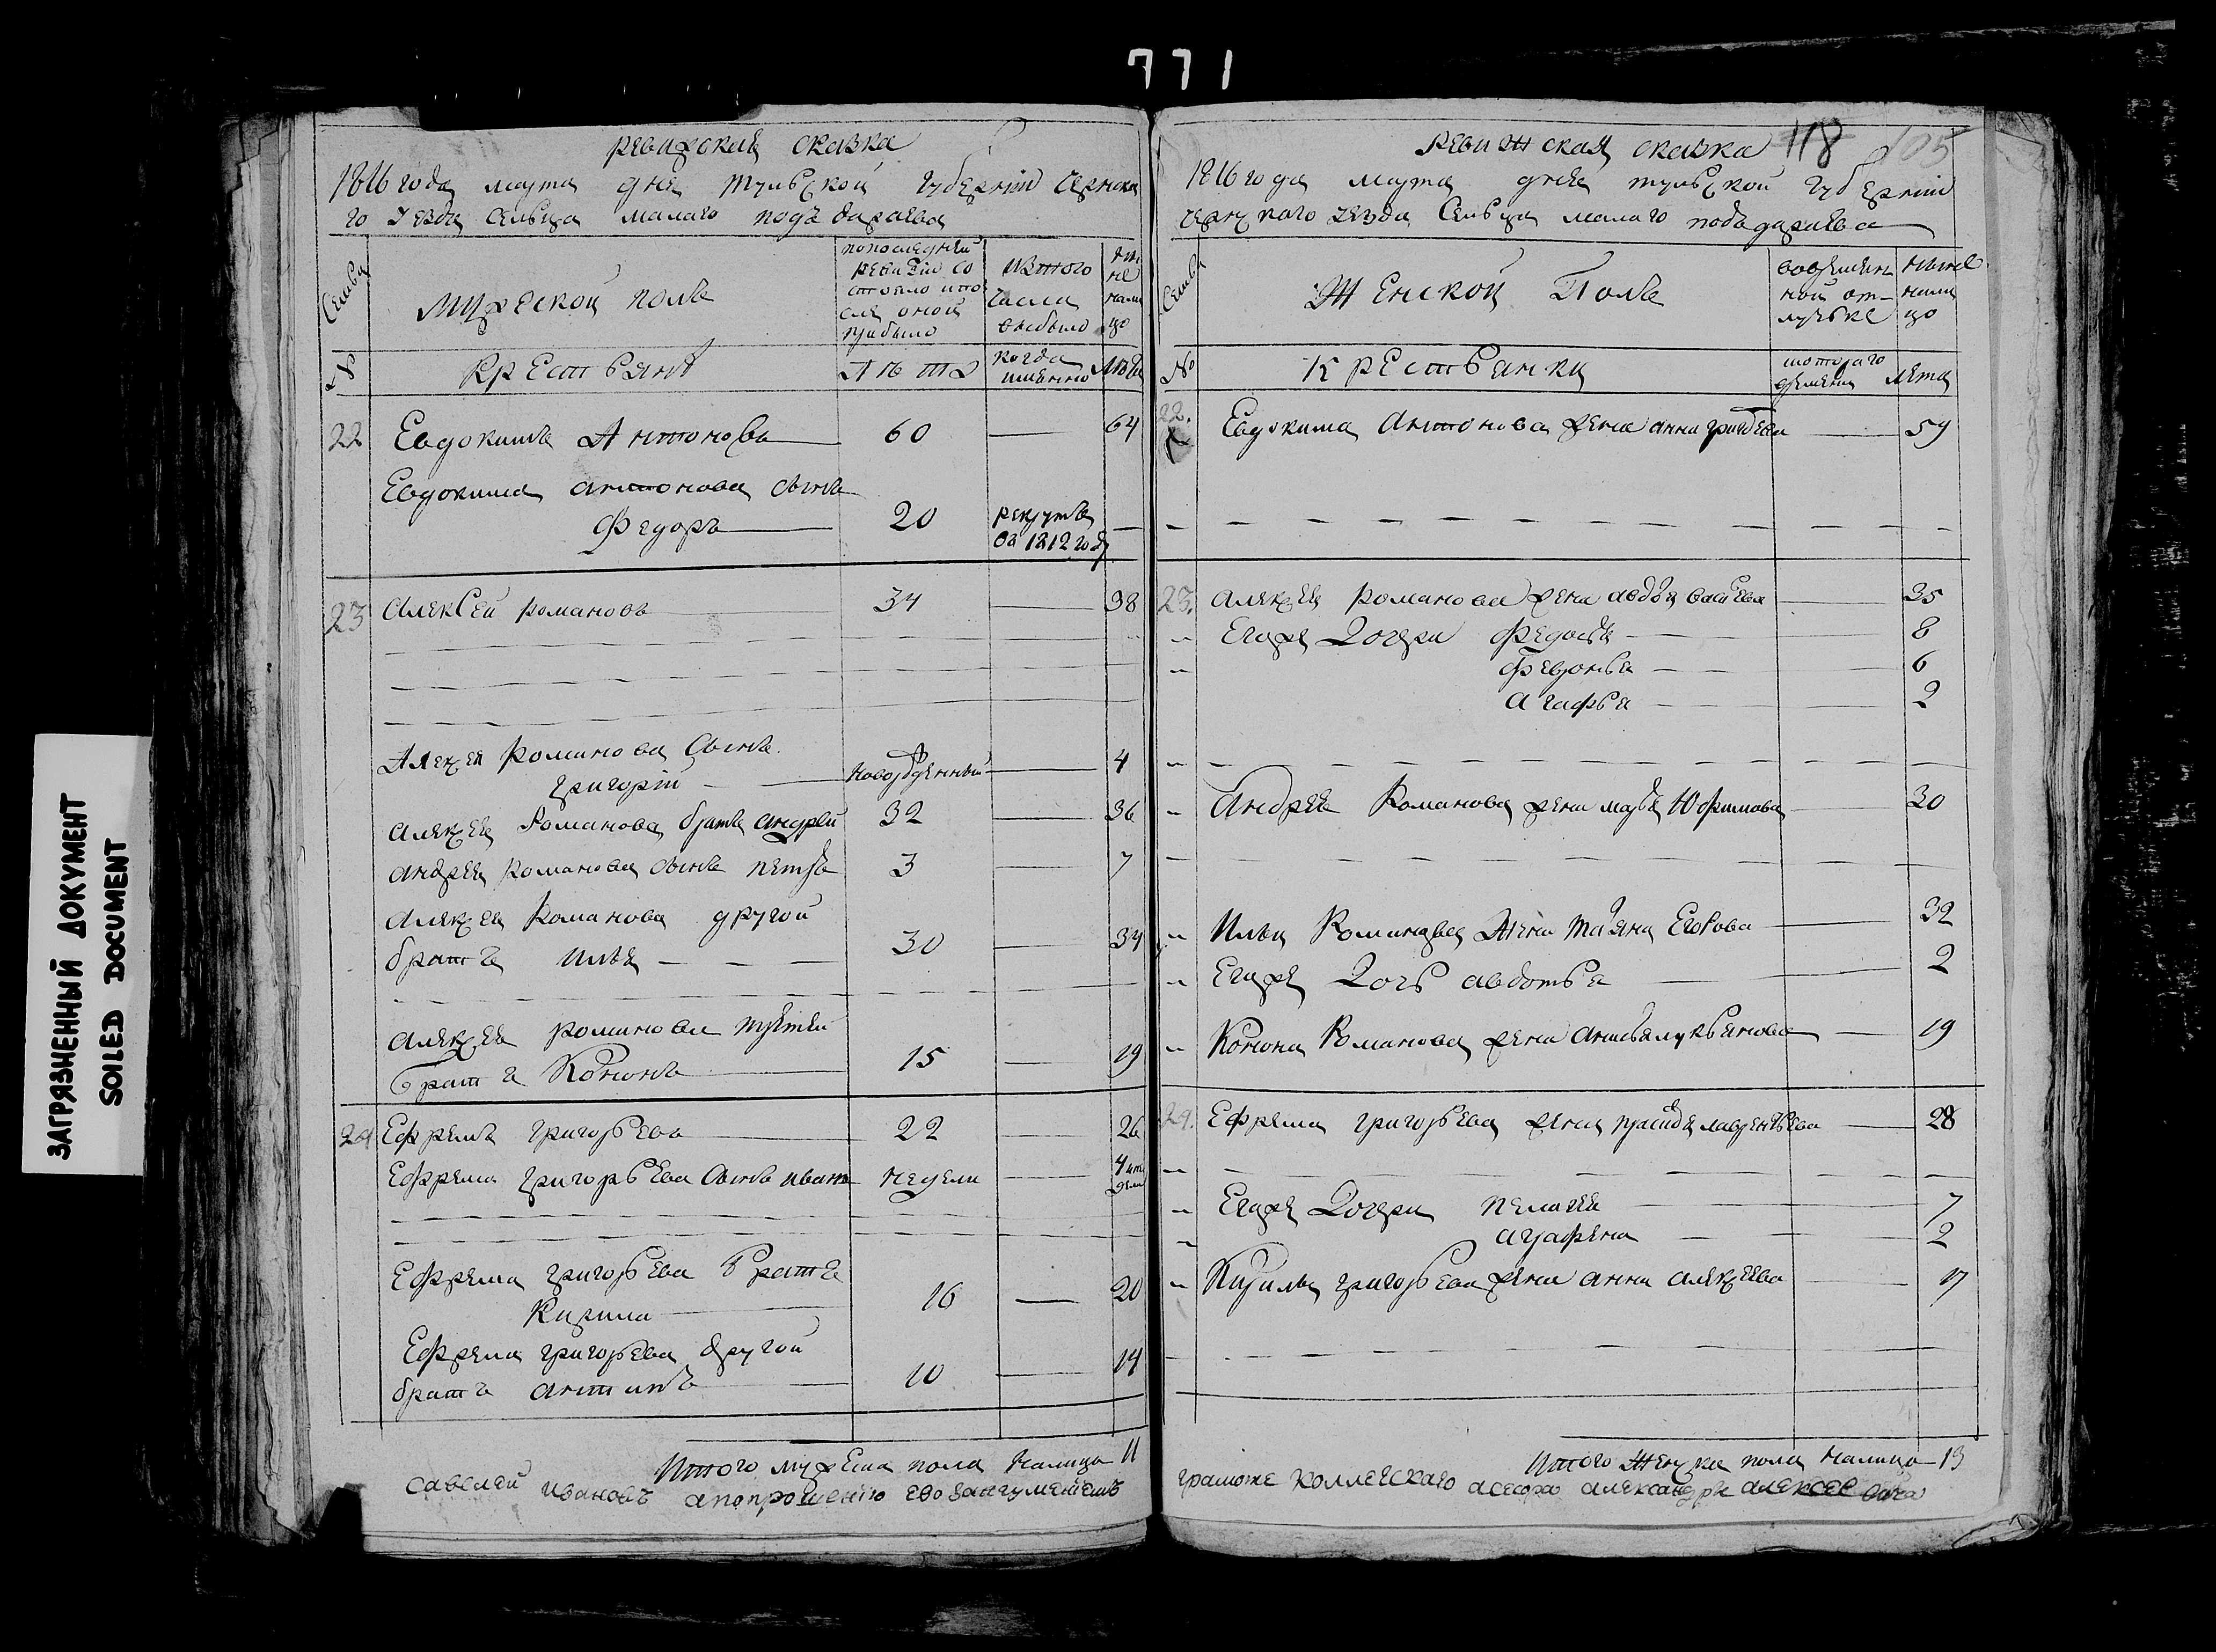 771
ЗАГРЯЗНЕННЫЙ ДОКУМЕНТ
SOILED DOCUMENT
ревижская сказка
1816 года марта дня тульской губернии чернска
го уезда сельца малаго подъ
Семьи
мужеской полъ
попоследней
ревизии со
стояло и по
сле оной
прибыло
изтого
числа
выбыло
ны
не
нали
цо
№
крестьянъ
лѣта
когда
имянно
лѣта
22 Евдокимъ Антоновъ 60 — 64
Евдокима антонова сынъ
Федоръ 20 рекрутъ —
въ 1812 году
23 Алексей романовъ 34 — 38
Алексея романова сынъ
григорий новорожденный — 4
алексея романова братъ андрей 32 — 36
андрея романова сынъ петръ 3 — 7
алексея романова другой
братъ илья 30 — 34
алексея романова третей
братъ Кононъ 15 — 19
24 Ефремъ григорьевъ 22 — 26
Ефрема григорьева сынъ иванъ недели — 4
Ефрема григорьева братъ
Кирила 16 — 20
Ефрема григорьева другой
братъ антипъ 10 — 14
Итого мужеска пола налицо 11
савелей ивановъ а по прошению ево
118 105
Ревижская сказка
1816 года марта дня тульской губернии
чернскаго уезда сельца малаго
Семьи
Женской Полъ
вовремян
ной от-
лучке
ныне
нали
цо
№
крестьянки
скотораго
времяни
лета
22. Евдокима антонова жена анна — 59
23. алексея романова жена авдотья — 35
Егоже Дочери федосья 8
февронья 6
агафья 2
андрея романова жена марья Юфимова 30
Ильи романова жена татьяна Егорова 32
Егоже Дочь авдотья 2
Конона романова жена анисья лукьянова 19
24. Ефрема григорьева жена лаврентьева 28
Егоже Дочери пелагея 7
аграфена 2
Кирилы григорьева жена анна алексеева 17
Итого женска пола налицо 13
грамоте коллежскаго асесора александра алексеевича